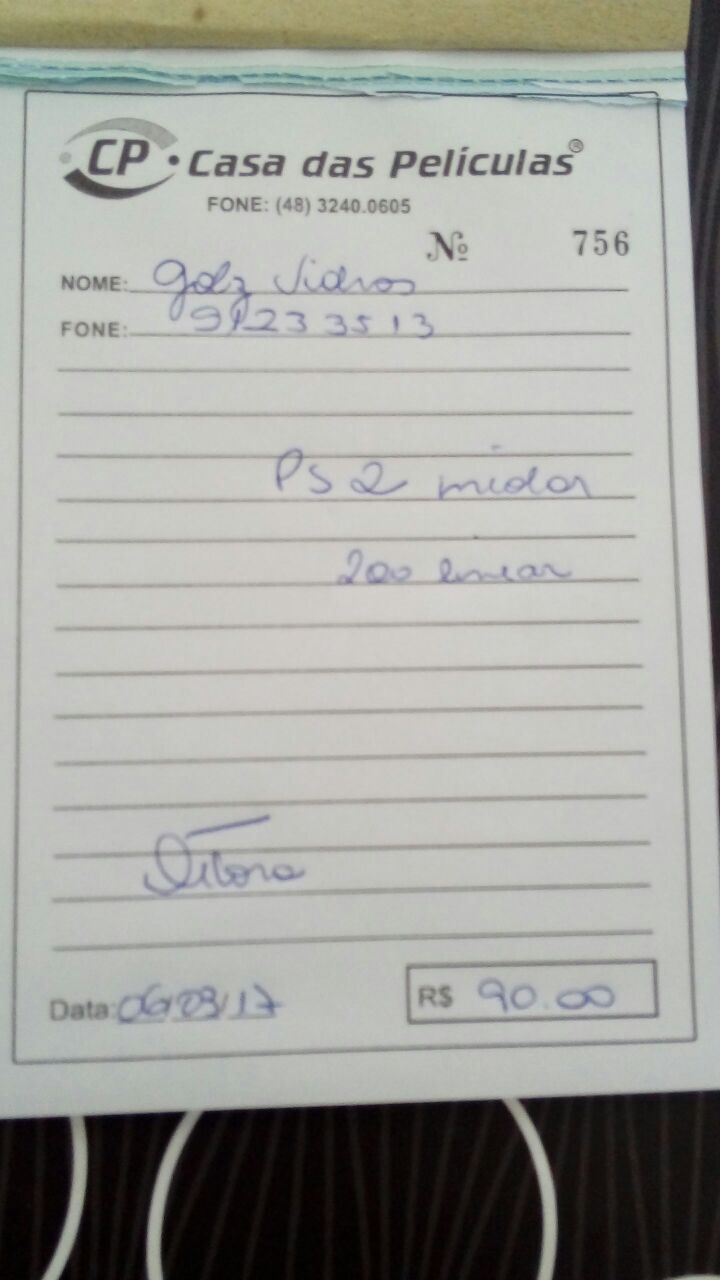 CP • Casa das Películas®
FONE: (48) 3240.0605
Nº 756
NOME: Golz Vidros
FONE: 91233513
PS 2 midar
200 linear
Débora
Data: 06/03/17
R$ 90.00